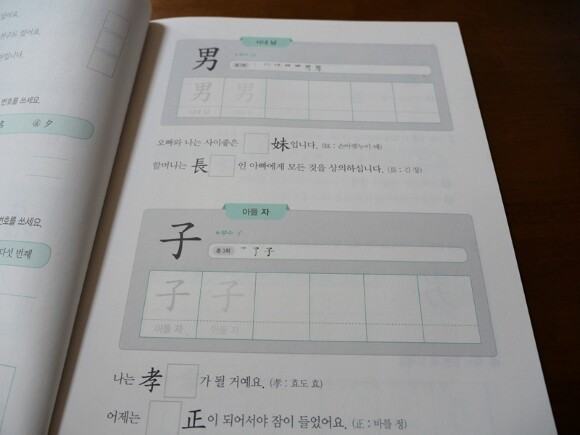 있어요.
있어요.
입니다.
번호를 쓰세요.
④ 夕
번호를 쓰세요.
다섯 번째
사내 남
男
男 男
오빠와 나는 사이좋은 妹입니다. (妹 : 손아랫누이 매)
할머니는 長 인 아빠에게 모든 것을 상의하십니다. (長 : 긴 장)
아들 자
子
부수 子
총 3획
子 子
아들 자 아들 자
나는 孝 가 될 거예요. (孝 : 효도 효)
어제는 正이 되어서야 잠이 들었어요. (正 : 바를 정)